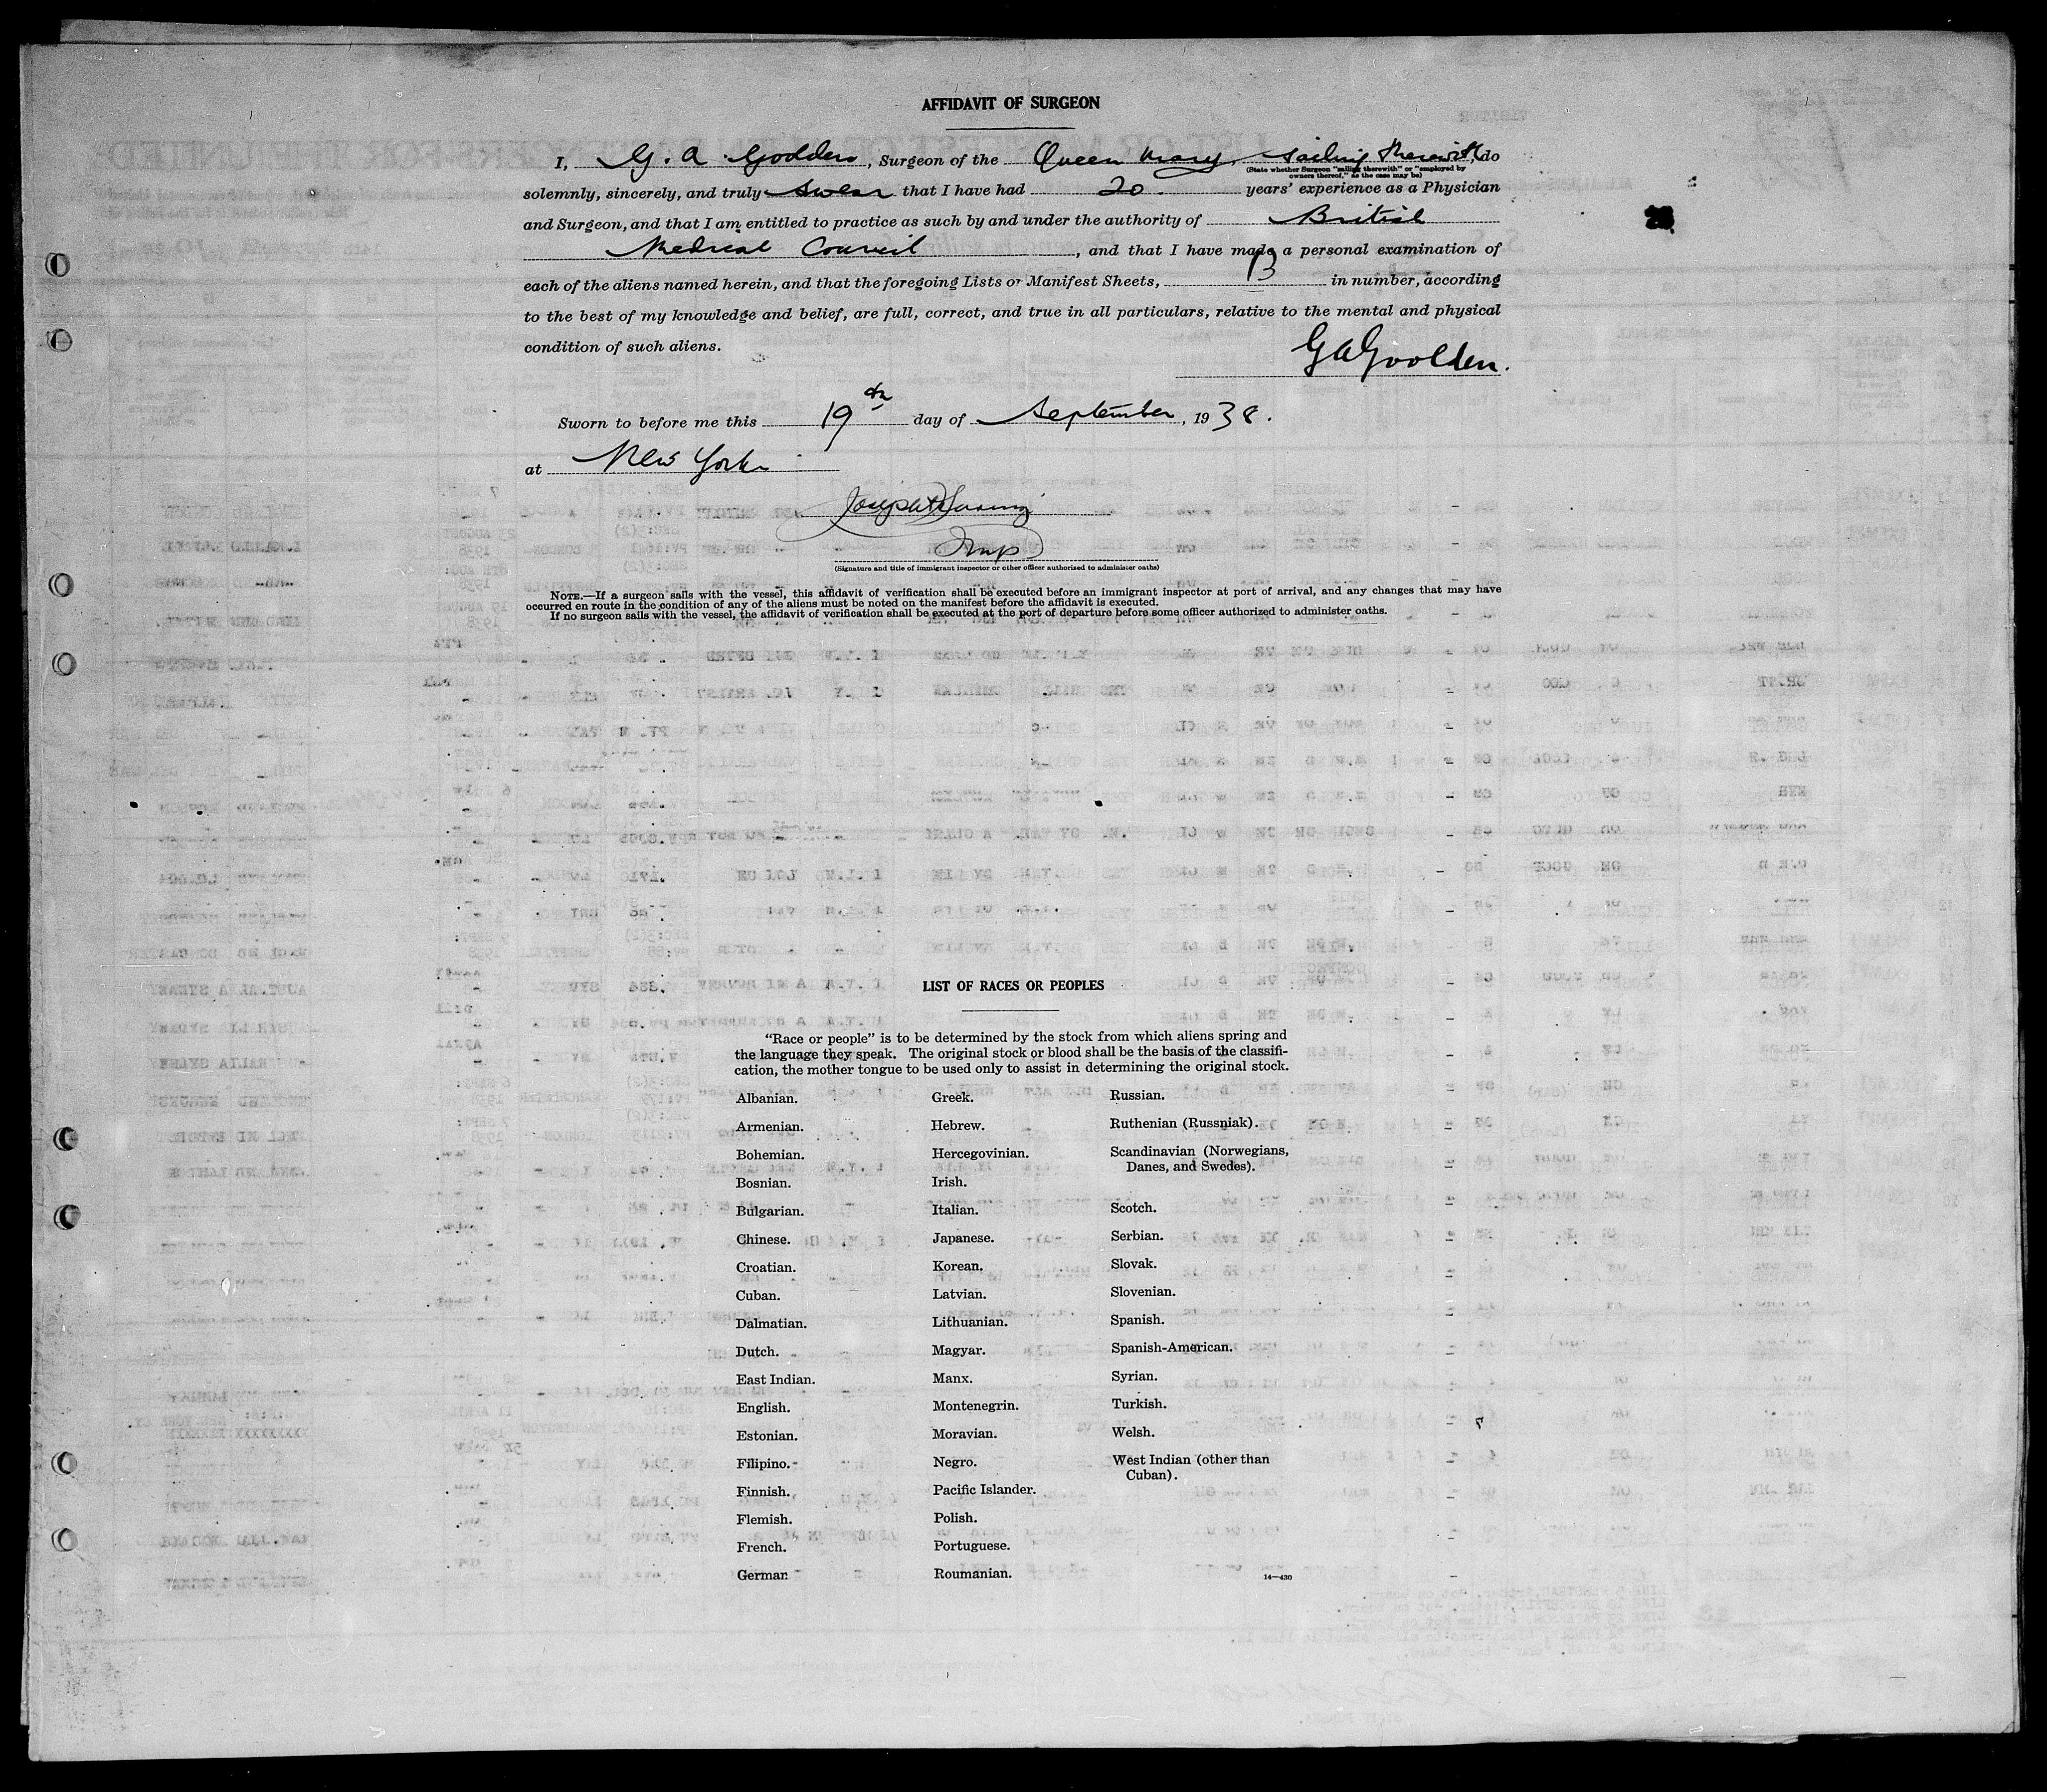 AFFIDAVIT OF SURGEON
I, G. A. Goolden, Surgeon of the Queen Mary, sailing therewith, do
(State whether Surgeon "sailing therewith" or "employed by
owners thereof," as the case may be)
solemnly, sincerely, and truly swear that I have had 20 years' experience as a Physician
and Surgeon, and that I am entitled to practice as such by and under the authority of British
Medical Council, and that I have made a personal examination of
each of the aliens named herein, and that the foregoing Lists or Manifest Sheets, 13 in number, according
to the best of my knowledge and belief, are full, correct, and true in all particulars, relative to the mental and physical
condition of such aliens.
G A Goolden.
Sworn to before me this 19th day of September, 1938.
at New York
Joseph
Insp
(Signature and title of immigrant inspector or other officer authorized to administer oaths)
NOTE.—If a surgeon sails with the vessel, this affidavit of verification shall be executed before an immigrant inspector at port of arrival, and any changes that may have
occurred en route in the condition of any of the aliens must be noted on the manifest before the affidavit is executed.
If no surgeon sails with the vessel, the affidavit of verification shall be executed at the port of departure before some officer authorized to administer oaths.
LIST OF RACES OR PEOPLES
"Race or people" is to be determined by the stock from which aliens spring and
the language they speak. The original stock or blood shall be the basis of the classifi-
cation, the mother tongue to be used only to assist in determining the original stock.
Albanian.
Armenian.
Bohemian.
Bosnian.
Bulgarian.
Chinese.
Croatian.
Cuban.
Dalmatian.
Dutch.
East Indian.
English.
Estonian.
Filipino.
Finnish.
Flemish.
French.
German.
Greek.
Hebrew.
Hercegovinian.
Irish.
Italian.
Japanese.
Korean.
Latvian.
Lithuanian.
Magyar.
Manx.
Montenegrin.
Moravian.
Negro.
Pacific Islander.
Polish.
Portuguese.
Roumanian.
Russian.
Ruthenian (Russniak).
Scandinavian (Norwegians,
Danes, and Swedes).
Scotch.
Serbian.
Slovak.
Slovenian.
Spanish.
Spanish-American.
Syrian.
Turkish.
Welsh.
West Indian (other than
Cuban).
14—430